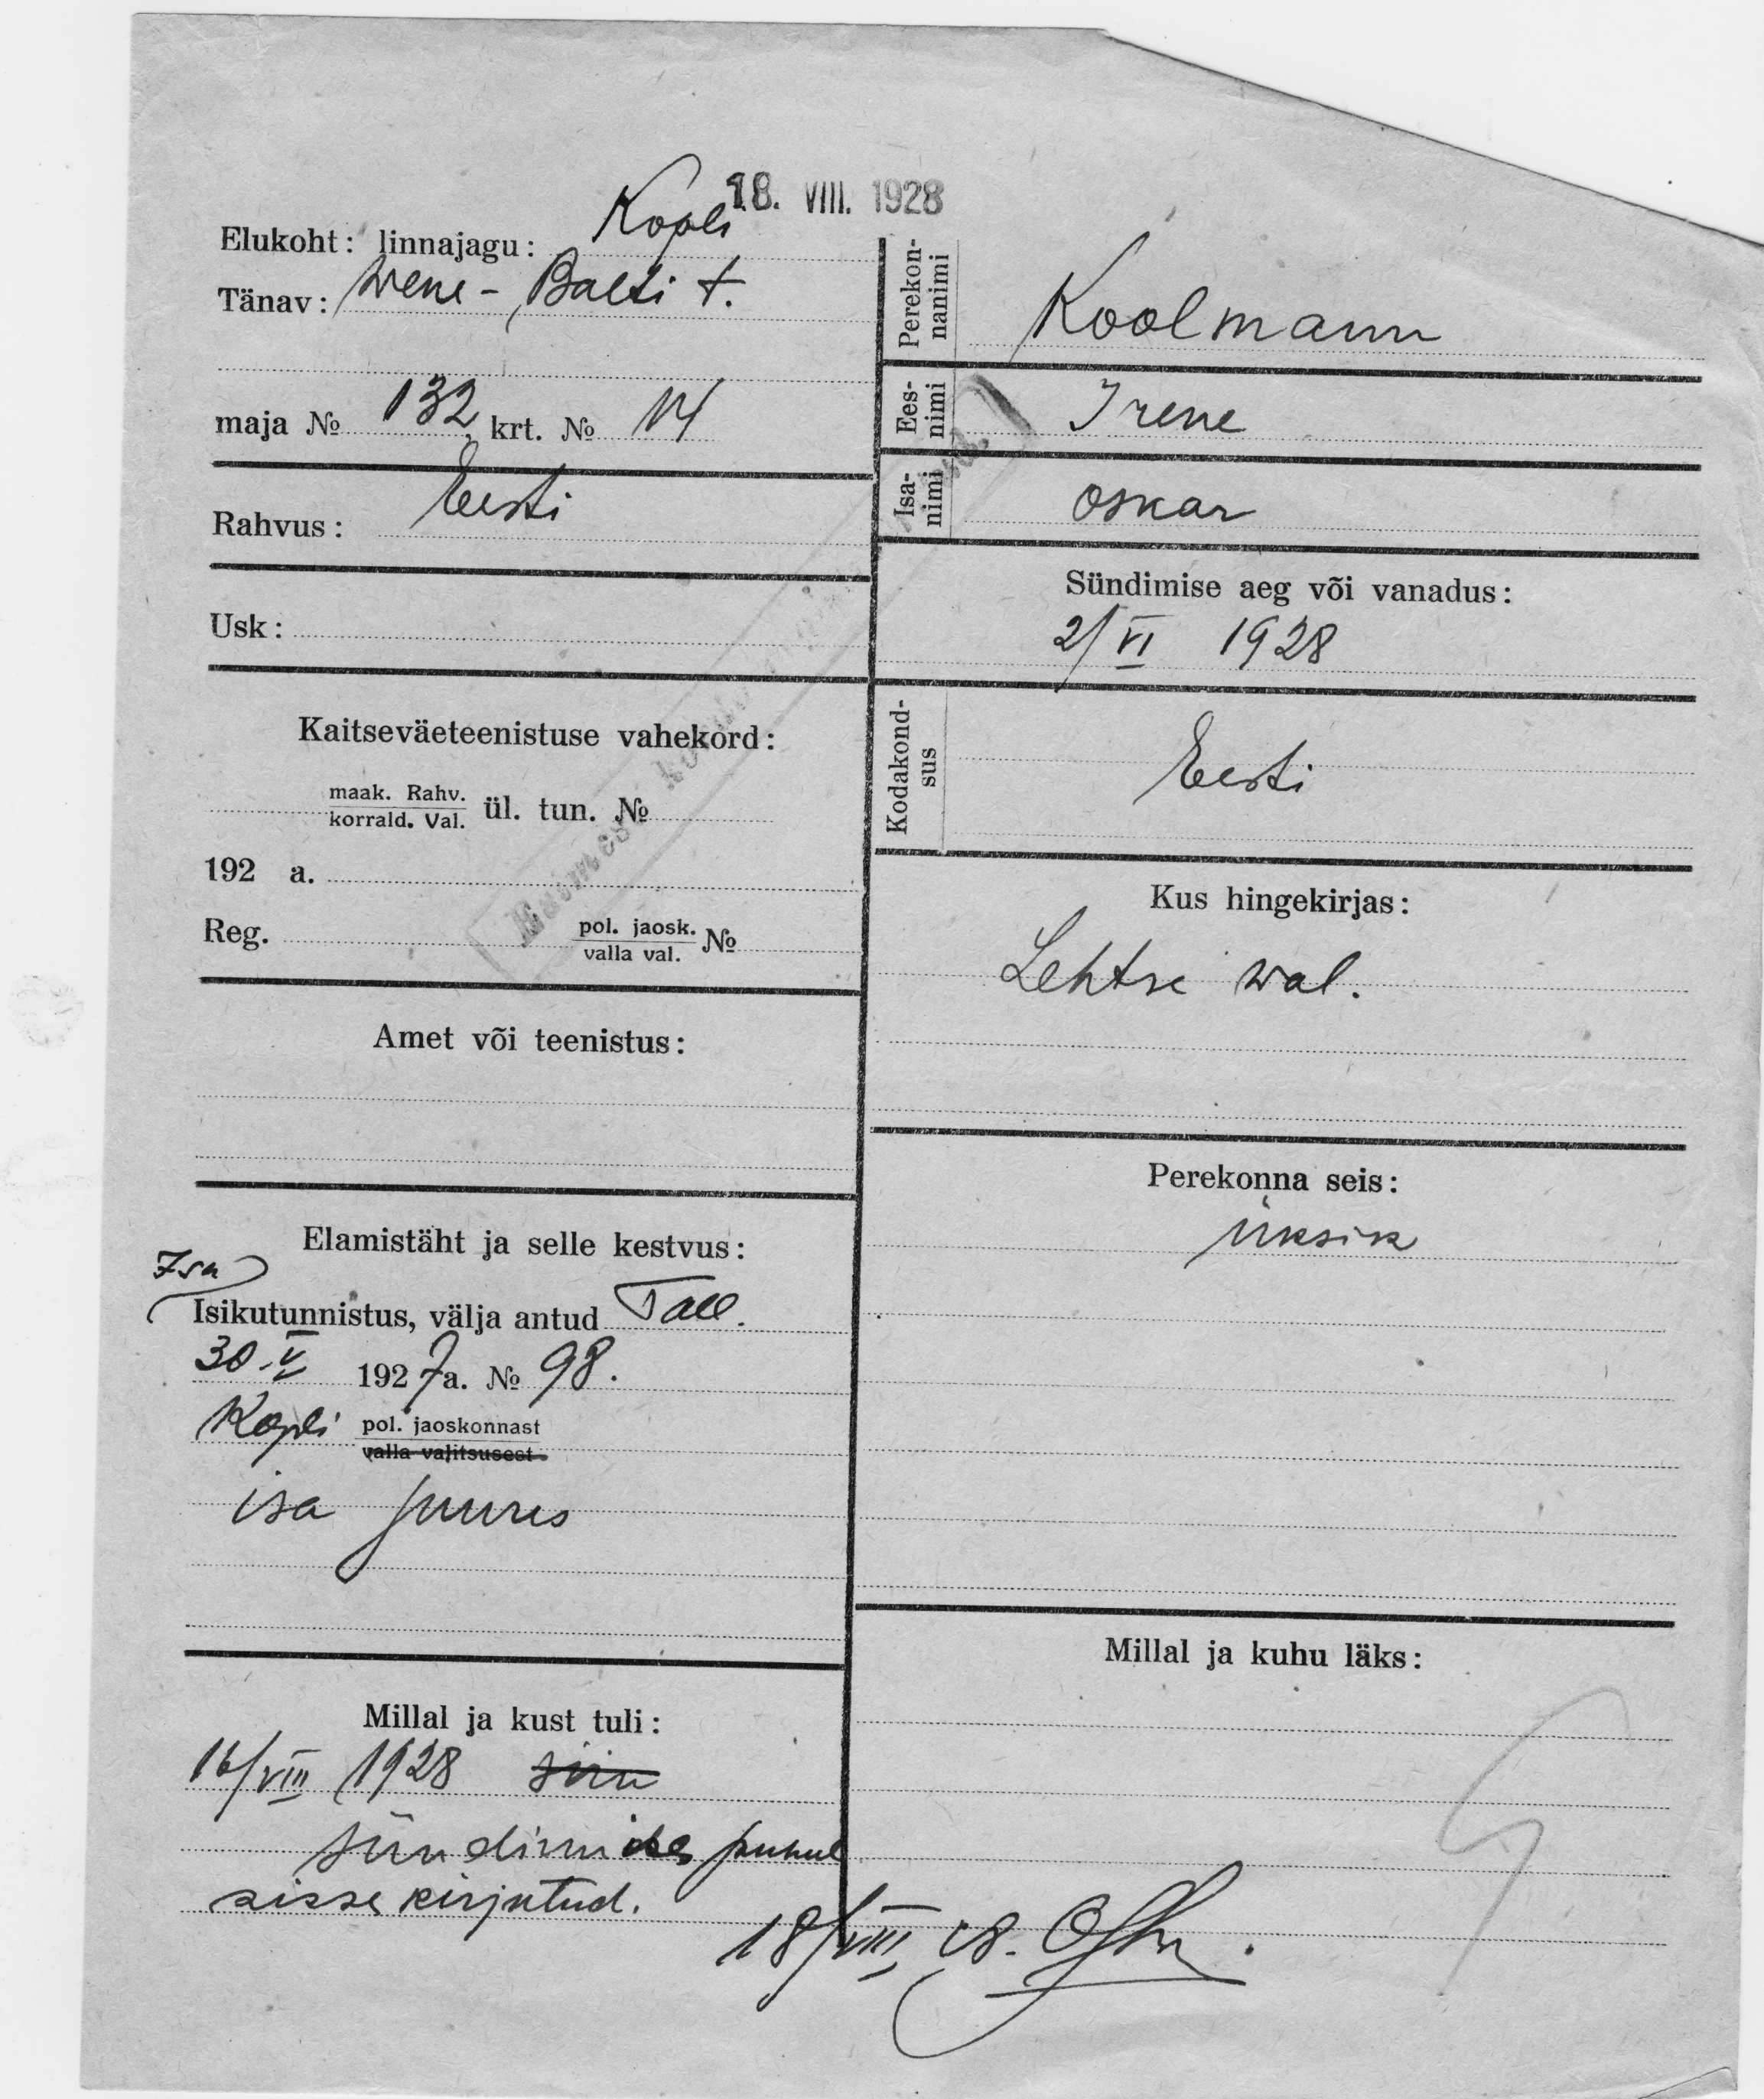 18. VIII. 1928
Elukoht: linnajagu: Kopli
Tänav: Wene-Balti t.
maja № 132 krt. № 14
Rahvus: Eesti
Usk:
Kaitseväeteenistuse vahekord:
maak. Rahv.
korrald. Val. ül. tun. №
192 a.
Reg. pol. jaosk.
valla val. №
Amet või teenistus:
Elamistäht ja selle kestvus:
Isa
Isikutunnistus, välja antud Tall.
30.V 1927a. № 98.
Kopli pol. jaoskonnast
valla valitsusest
isa juures
Millal ja kust tuli:
16/VIII 1928 siin
sündimise puhul
sisse kirjutud.
18/VIII 28.
Perekon-
nanimi
Koolmann
Ees-
nimi
Irene
Isa-
nimi
Oskar
Sündimise aeg või vanadus:
2/VI 1928
Kodakond-
sus
Eesti
Kus hingekirjas:
Lehtse wal.
Perekonna seis:
üksik
Millal ja kuhu läks: